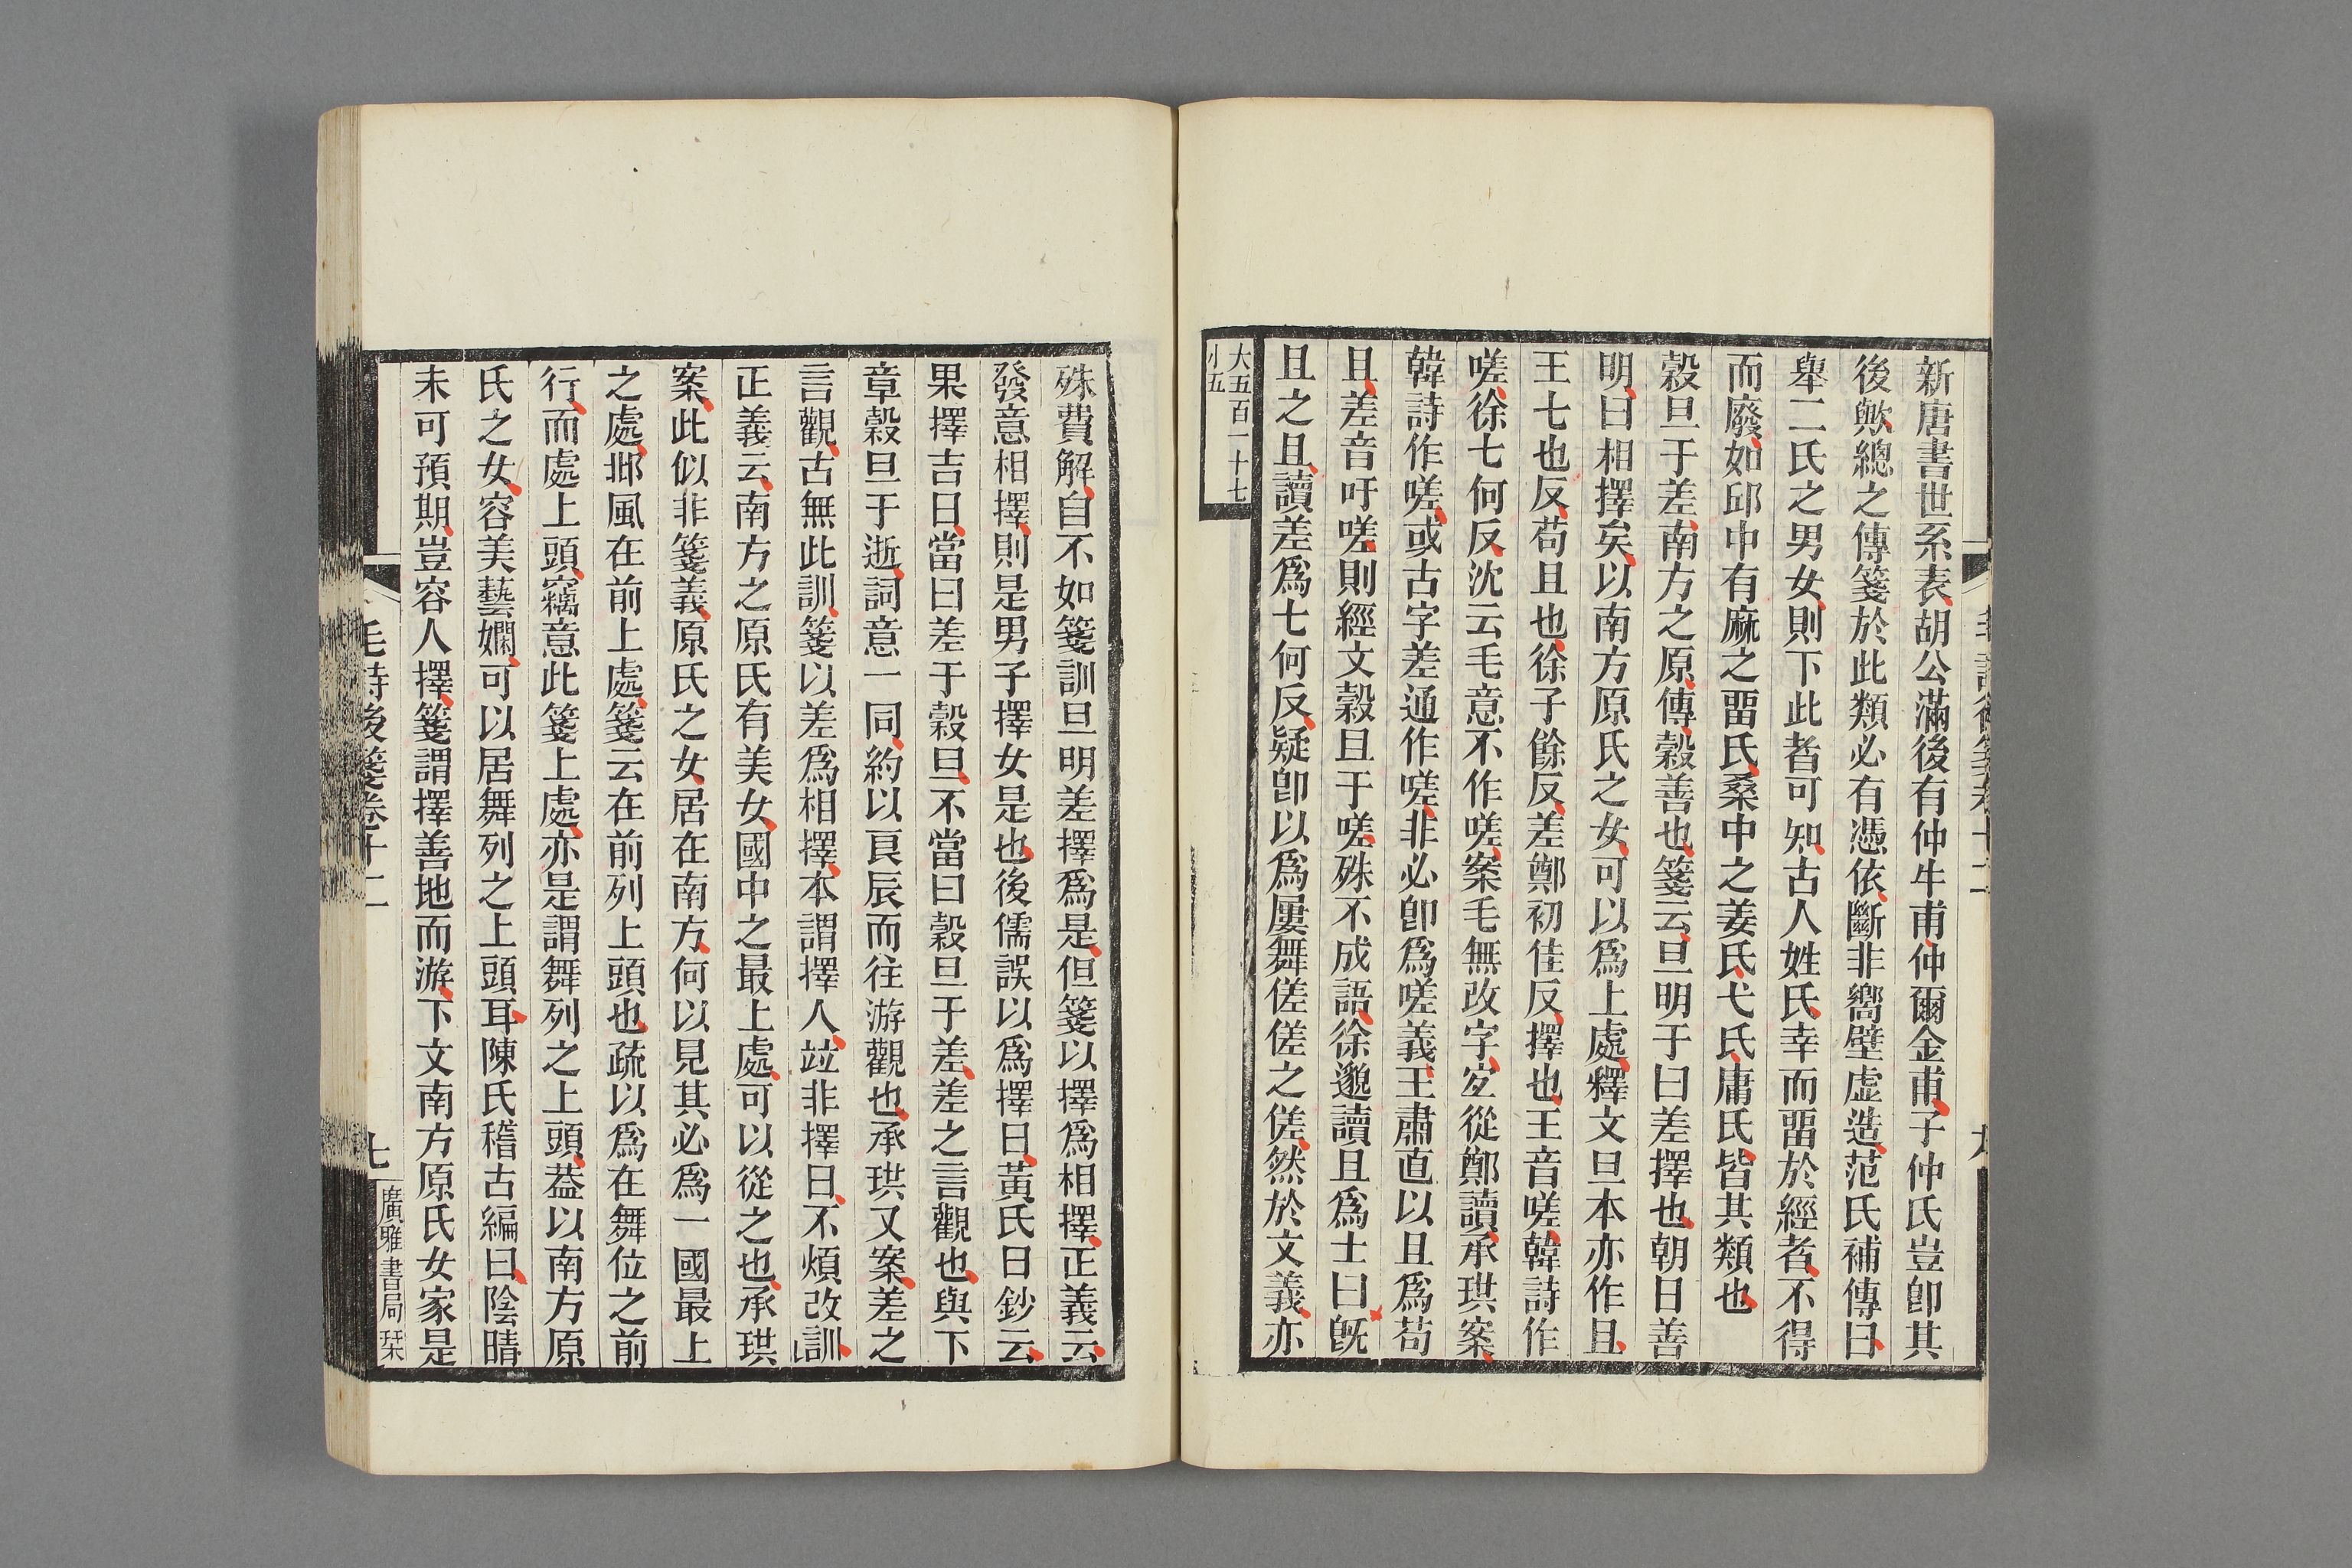 新唐書世系表胡公滿後有仲牛甫仲爾金甫子仲氏豈卽其
後歟總之傳箋於此類必有憑依斷非嚮壁虛造范氏補傳曰
舉二氏之男女則下此者可知古人姓氏幸而畱於經者不得
而廢如邱中有麻之畱氏桑中之姜氏弋氏庸氏皆其類也
穀旦于差南方之原傳穀善也箋云旦明于曰差擇也朝日善
明曰相擇矣以南方原氏之女可以爲上處釋文旦本亦作且
王七也反苟且也徐子餘反差鄭初佳反擇也王音嗟韓詩作
嗟徐七何反沈云毛意不作嗟案毛無改字宐從鄭讀承珙案
韓詩作嗟或古字差通作嗟非必卽爲嗟義王肅直以且爲苟
且差音吁嗟則經文穀且于嗟殊不成語徐邈讀且爲士曰旣
且之且讀差爲七何反疑卽以爲屢舞傞傞之傞然於文義亦
大五百一十七
小五
殊費解自不如箋訓旦明差擇爲是但箋以擇爲相擇正義云
發意相擇則是男子擇女是也後儒誤以爲擇日黃氏日鈔云
果擇吉日當曰差于穀旦不當曰穀旦于差差之言觀也與下
章穀旦于逝詞意一同約以良辰而往游觀也承珙又案差之
言觀古無此訓箋以差爲相擇本謂擇人竝非擇日不煩改訓
正義云南方之原氏有美女國中之最上處可以從之也承珙
案此似非箋義原氏之女居在南方何以見其必爲一國最上
之處邶風在前上處箋云在前列上頭也疏以爲在舞位之前
行而處上頭竊意此箋上處亦是謂舞列之上頭葢以南方原
氏之女容美藝嫻可以居舞列之上頭耳陳氏稽古編曰陰晴
未可預期豈容人擇箋謂擇善地而游下文南方原氏女家是
毛詩後箋卷十二
七
廣雅書局栞